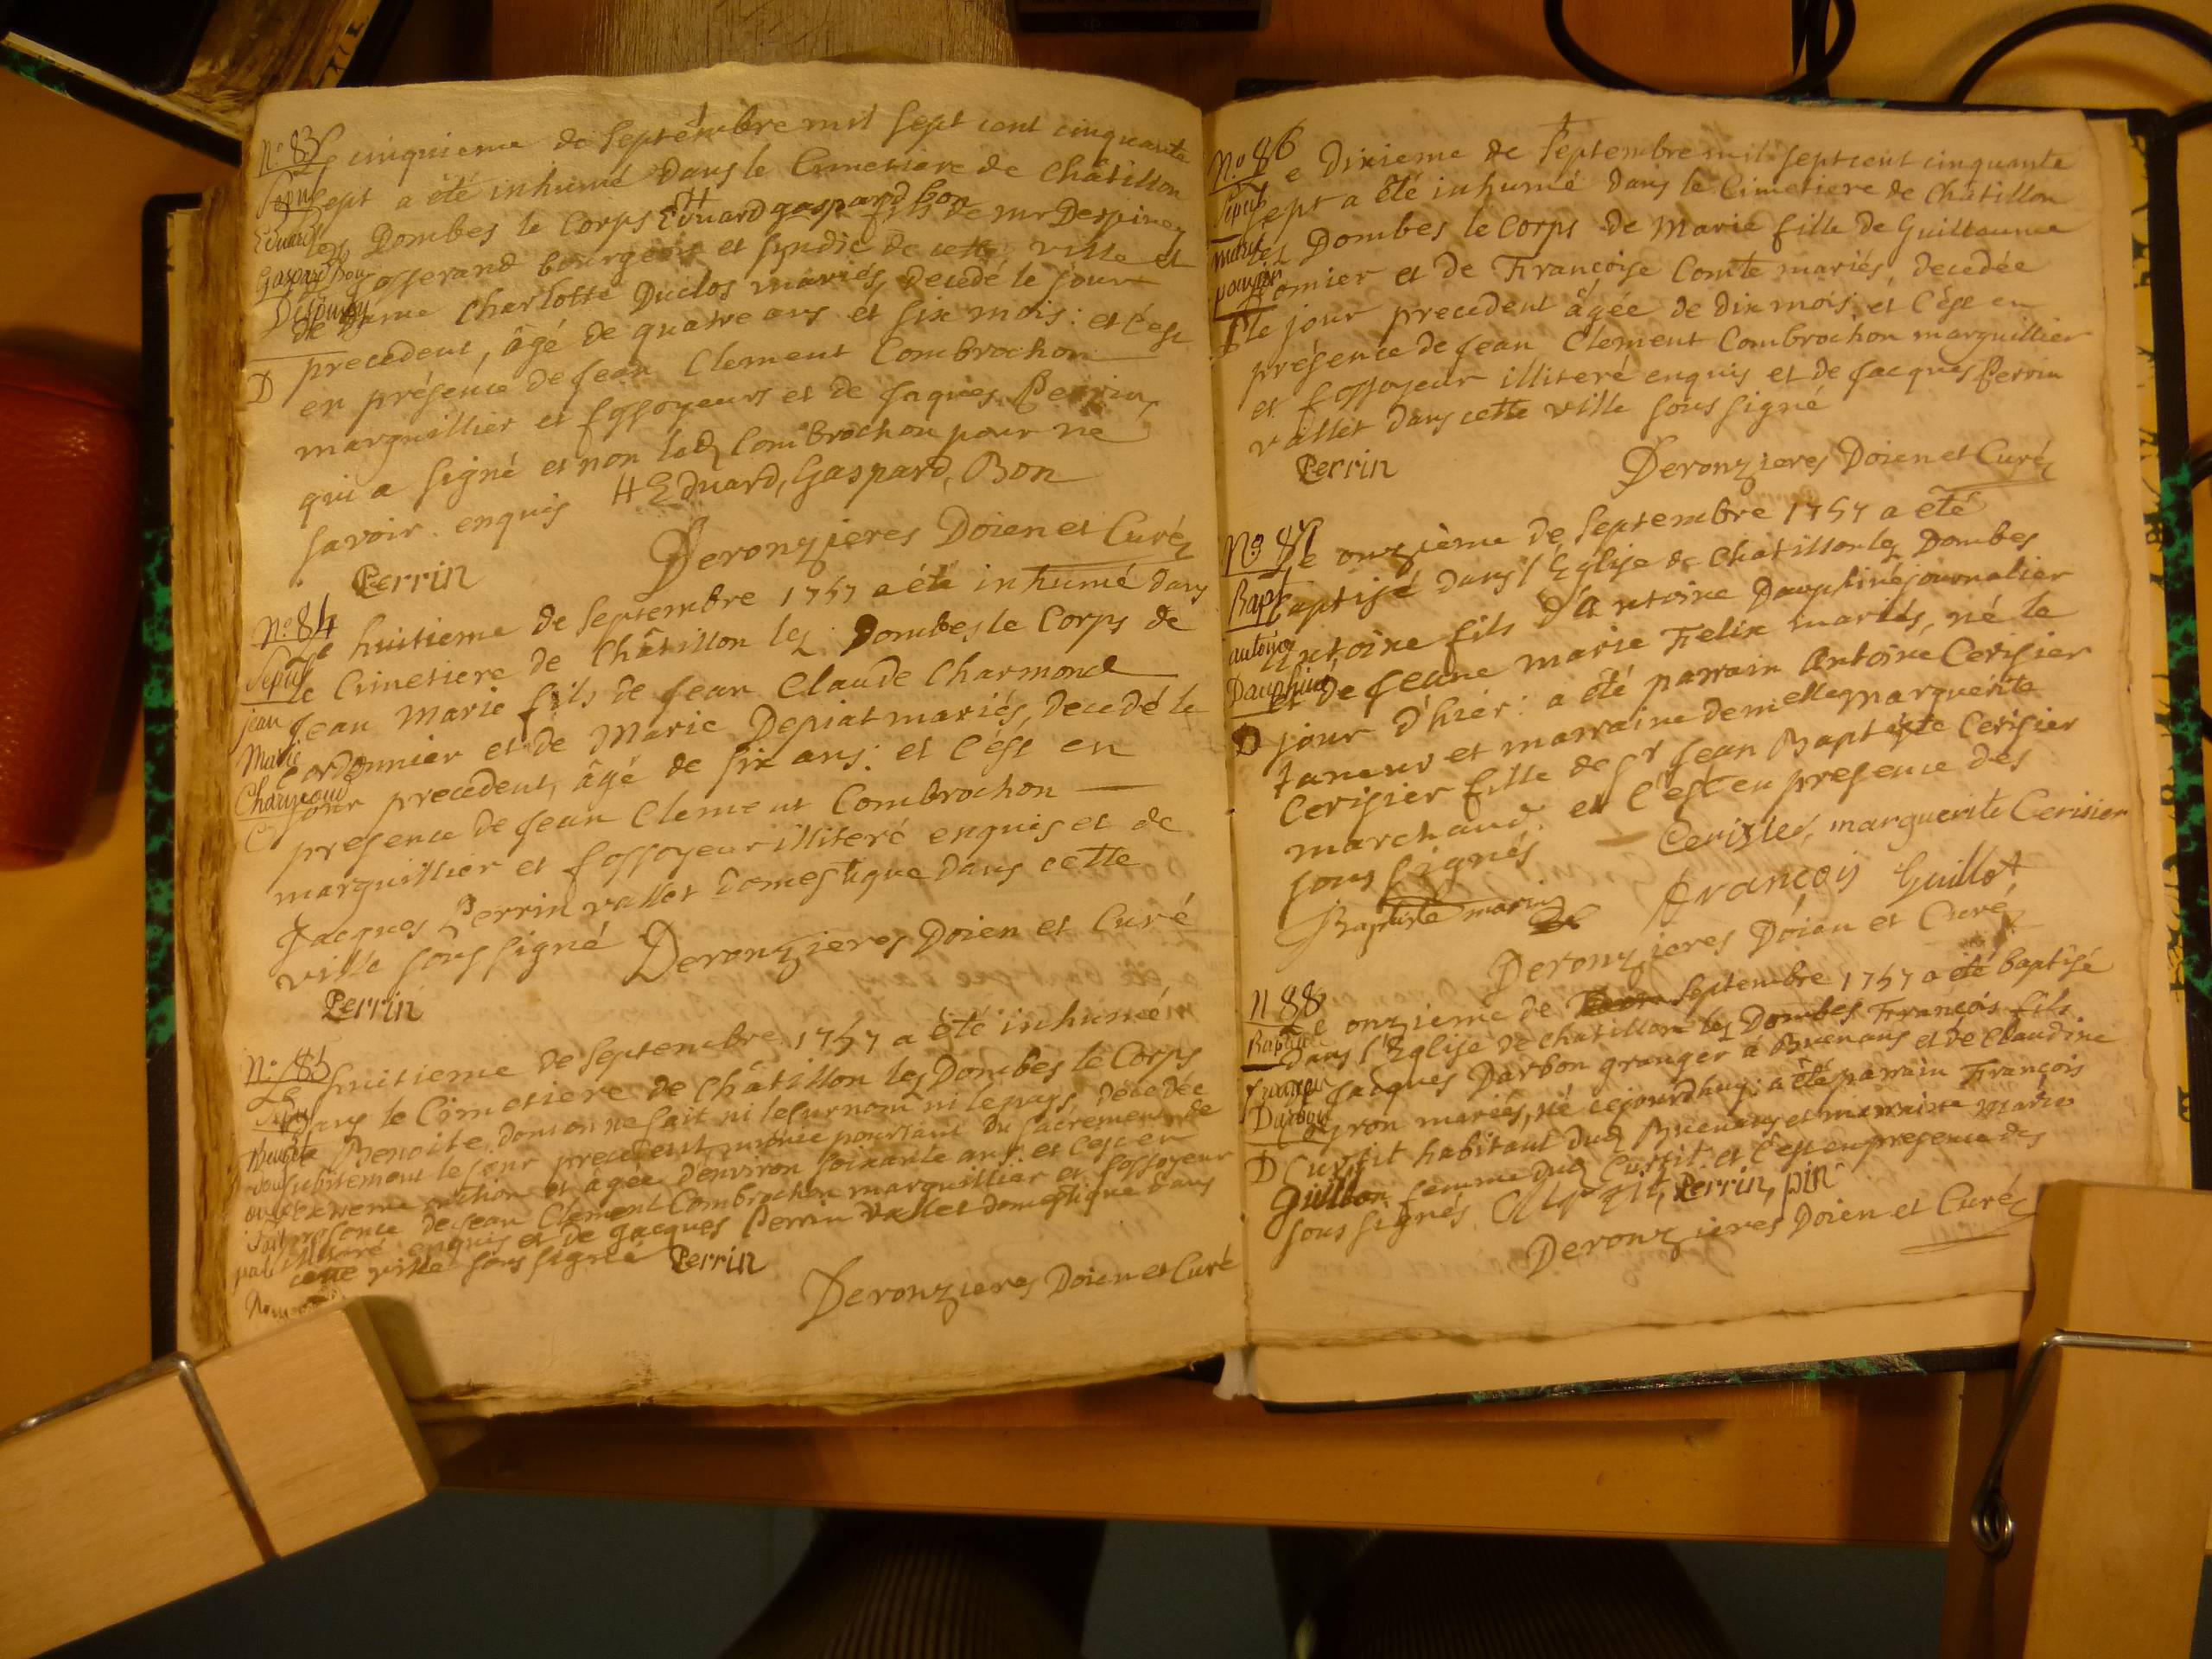 N.o 83 Le cinquieme de Septembre mil sept cent cinquante
Sepult sept a été inhumé dans le Cimetiere de Châtillon
Eduard les Dombes le Corps Eduard gaspard bon fils de mr Despiney
Gaspard Bon Josserand bourgeois et syndic de cette ville et
Despiney de dame Charlotte Duclos mariés, decedé le jour
D precedent, âgé de quatre ans et six mois : et c'est
en présence de Jean Clement Combrochon
marguillier et fossoyeurs et de Jaques Perrin,
qui a signé et non led. Combrochon pour ne
savoir enquis # Eduard, Gaspard, Bon
Perrin Deronzieres Doien et Curé
N.o 84 Le huitieme de Septembre 1757 a été inhumé dans
Sepult le Cimetiere de Châtillon les Dombes le Corps de
jean Jean Marie fils de Jean Claude Charmond
Marie Cordonnier et de Marie Depiat mariés, decedé le
Charmond jour precedent, âgé de six ans : et c'est en
C presence de Jean Clement Combrochon
marguillier et fossoyeur illiteré enquis et de
Jacques Perrin vallet domestique dans cette
ville soussigné Deronzieres Doien et Curé
Perrin
N.o 85 Le huitieme de Septembre 1757 a été inhumé
Sepu dans le Cimetiere de Châtillon les Dombes le Corps
Benoite de Benoite, dont on ne sait ni le surnom ni le pays, decedée
dont subitement le jour precedent munie pourtant du sacrement de
on ne l'extreme onction et âgée d'environ soixante ans : et c'est en
sait presence de Jean Clement Combrochon marguillier et fossoyeur
pas illiteré enquis et de Jacques Perrin vallet domestique dans
cette ville soussigné Perrin
Deronzieres Doien et Curé
N.o 86 Le dixieme de Septembre mil sept cent cinquante
Sepult sept a été inhumé dans le Cimetiere de Châtillon
marie les Dombes le Corps de Marie fille de Guillaume
ponier et de Françoise Comte mariés, decedée
le jour precedent âgée de dix mois, et c'est en
présence de Jean Clement Combrochon marguillier
et fossoyeur illiteré enquis et de Jacques Perrin
vallet dans cette ville soussigné
Perrin Deronzieres Doien et Curé
No 87 Le onzième de Septembre 1757 a été
Bapt baptisé dans l'Eglise de Châtillon les Dombes
antoine Antoine fils d'Antoine Dauphiné journalier
Dauphiné et de Jeane marie Felix mariés, né le
D jour d'hier : a été parrain Antoine Cerisier
taneur et marraine demelle marguerite
Cerisier fille de Sr Jean Baptiste Cerisier
marchand. et c'est en presence des
soussignés Cerisier, marguerite Cerisier
Baptiste marin François Guillot
Deronzieres Doien et Curé
N 88 Le onzieme de Septembre 1757 a été baptisé
Baptême dans l'Eglise de Chatillon les Dombes François fils
françois de Jacques Darbon granger à Buenans et de Claudine
Darbon Gyron mariés, né cejourdhuy : a été parrain François
D Curtit habitant dud. Buenans et marraine Marie
Guillon femme dud. Curtit et c'est en presence des
soussignés Perrin, pin
Deronzieres Doien et Curé